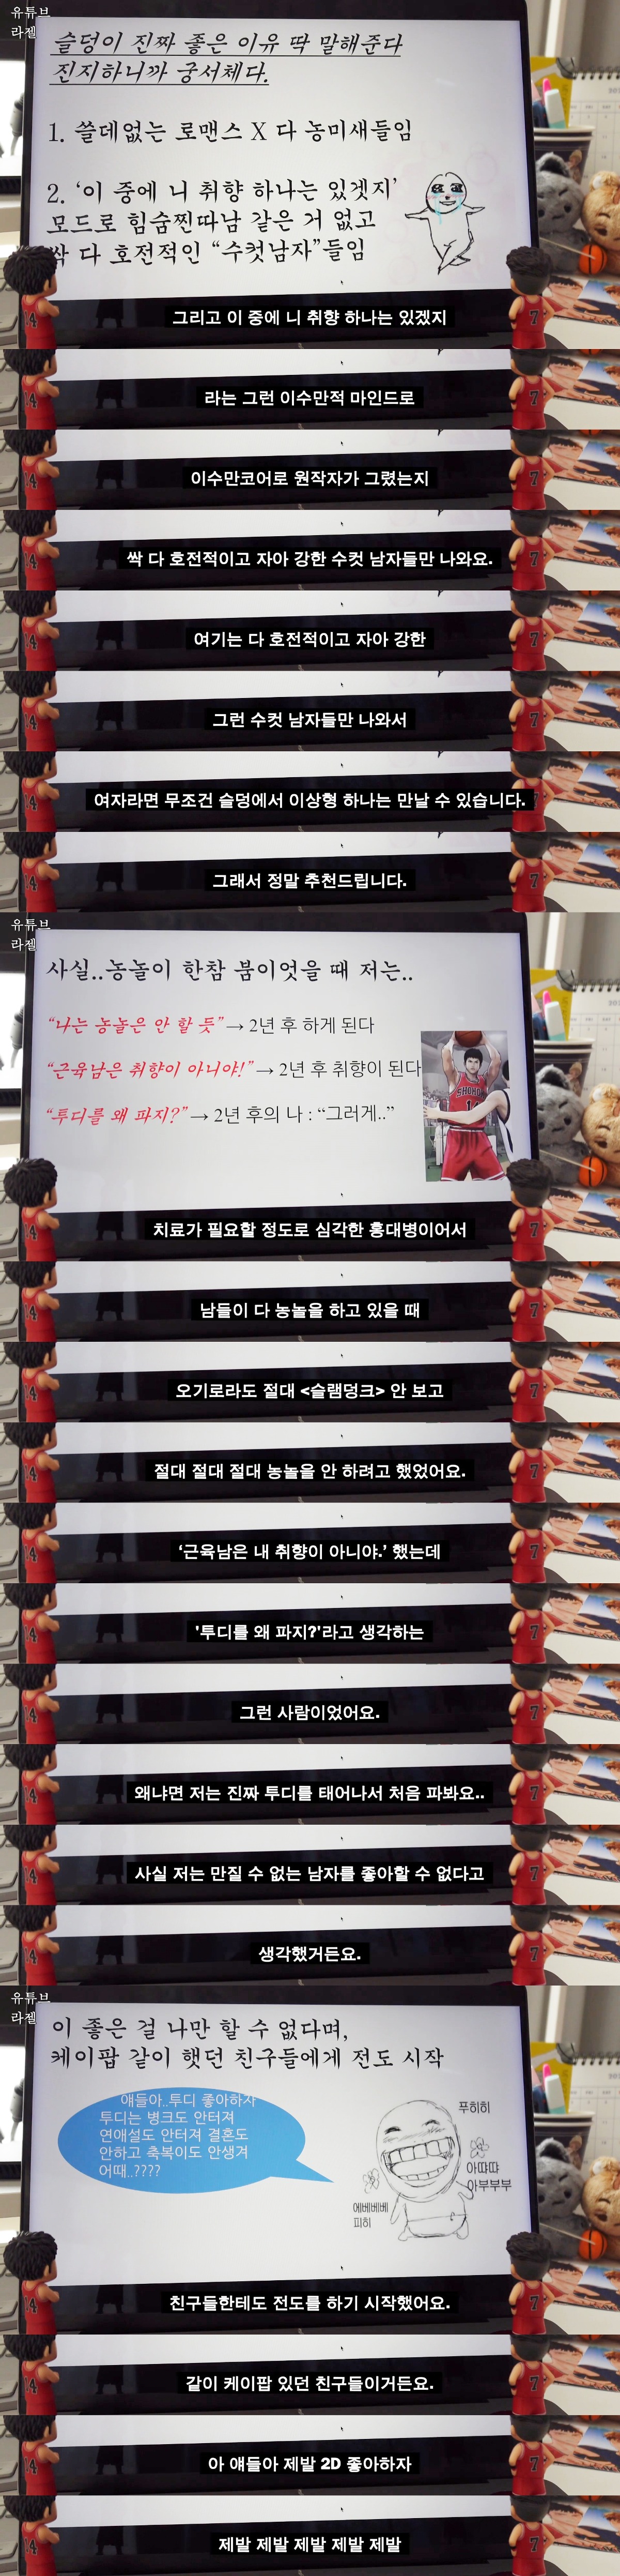 유튜브
라젤
슬덩이 진짜 좋은 이유 딱 말해준다
진지하니까 궁서체다.
1. 쓸데없는 로맨스 X 다 농미새들임
2. ‘이 중에 니 취향 하나는 있겟지’
모드로 힘숨찐따남 같은 거 없고
싹 다 호전적인 “수컷남자”들임
14
7
그리고 이 중에 니 취향 하나는 있겠지
14
7
라는 그런 이수만적 마인드로
14
7
이수만코어로 원작자가 그렸는지
14
7
싹 다 호전적이고 자아 강한 수컷 남자들만 나와요.
14
7
여기는 다 호전적이고 자아 강한
14
7
그런 수컷 남자들만 나와서
14
7
여자라면 무조건 슬덩에서 이상형 하나는 만날 수 있습니다.
14
7
그래서 정말 추천드립니다.
유튜브
라젤
사실..농놀이 한참 붐이엇을 때 저는..
“나는 농놀은 안 할 듯” → 2년 후 하게 된다
“근육남은 취향이 아니야!” → 2년 후 취향이 된다
“투디를 왜 파지?” → 2년 후의 나 : “그러게..”
SHOHO
14
14
7
치료가 필요할 정도로 심각한 홍대병이어서
14
7
남들이 다 농놀을 하고 있을 때
14
7
오기로라도 절대 <슬램덩크> 안 보고
14
7
절대 절대 절대 농놀을 안 하려고 했었어요.
14
7
‘근육남은 내 취향이 아니야.’ 했는데
14
7
'투디를 왜 파지?'라고 생각하는
14
7
그런 사람이었어요.
14
7
왜냐면 저는 진짜 투디를 태어나서 처음 파봐요..
14
7
사실 저는 만질 수 없는 남자를 좋아할 수 없다고
14
7
생각했거든요.
유튜브
라젤
이 좋은 걸 나만 할 수 없다며,
케이팝 같이 햇던 친구들에게 전도 시작
얘들아..투디 좋아하자
투디는 병크도 안터져
연애설도 안터져 결혼도
안하고 축복이도 안생겨
어때..????
푸히히
아땨땨
아부부부
에베베베
피히
14
7
친구들한테도 전도를 하기 시작했어요.
14
7
같이 케이팝 있던 친구들이거든요.
14
7
아 얘들아 제발 2D 좋아하자
14
7
제발 제발 제발 제발 제발